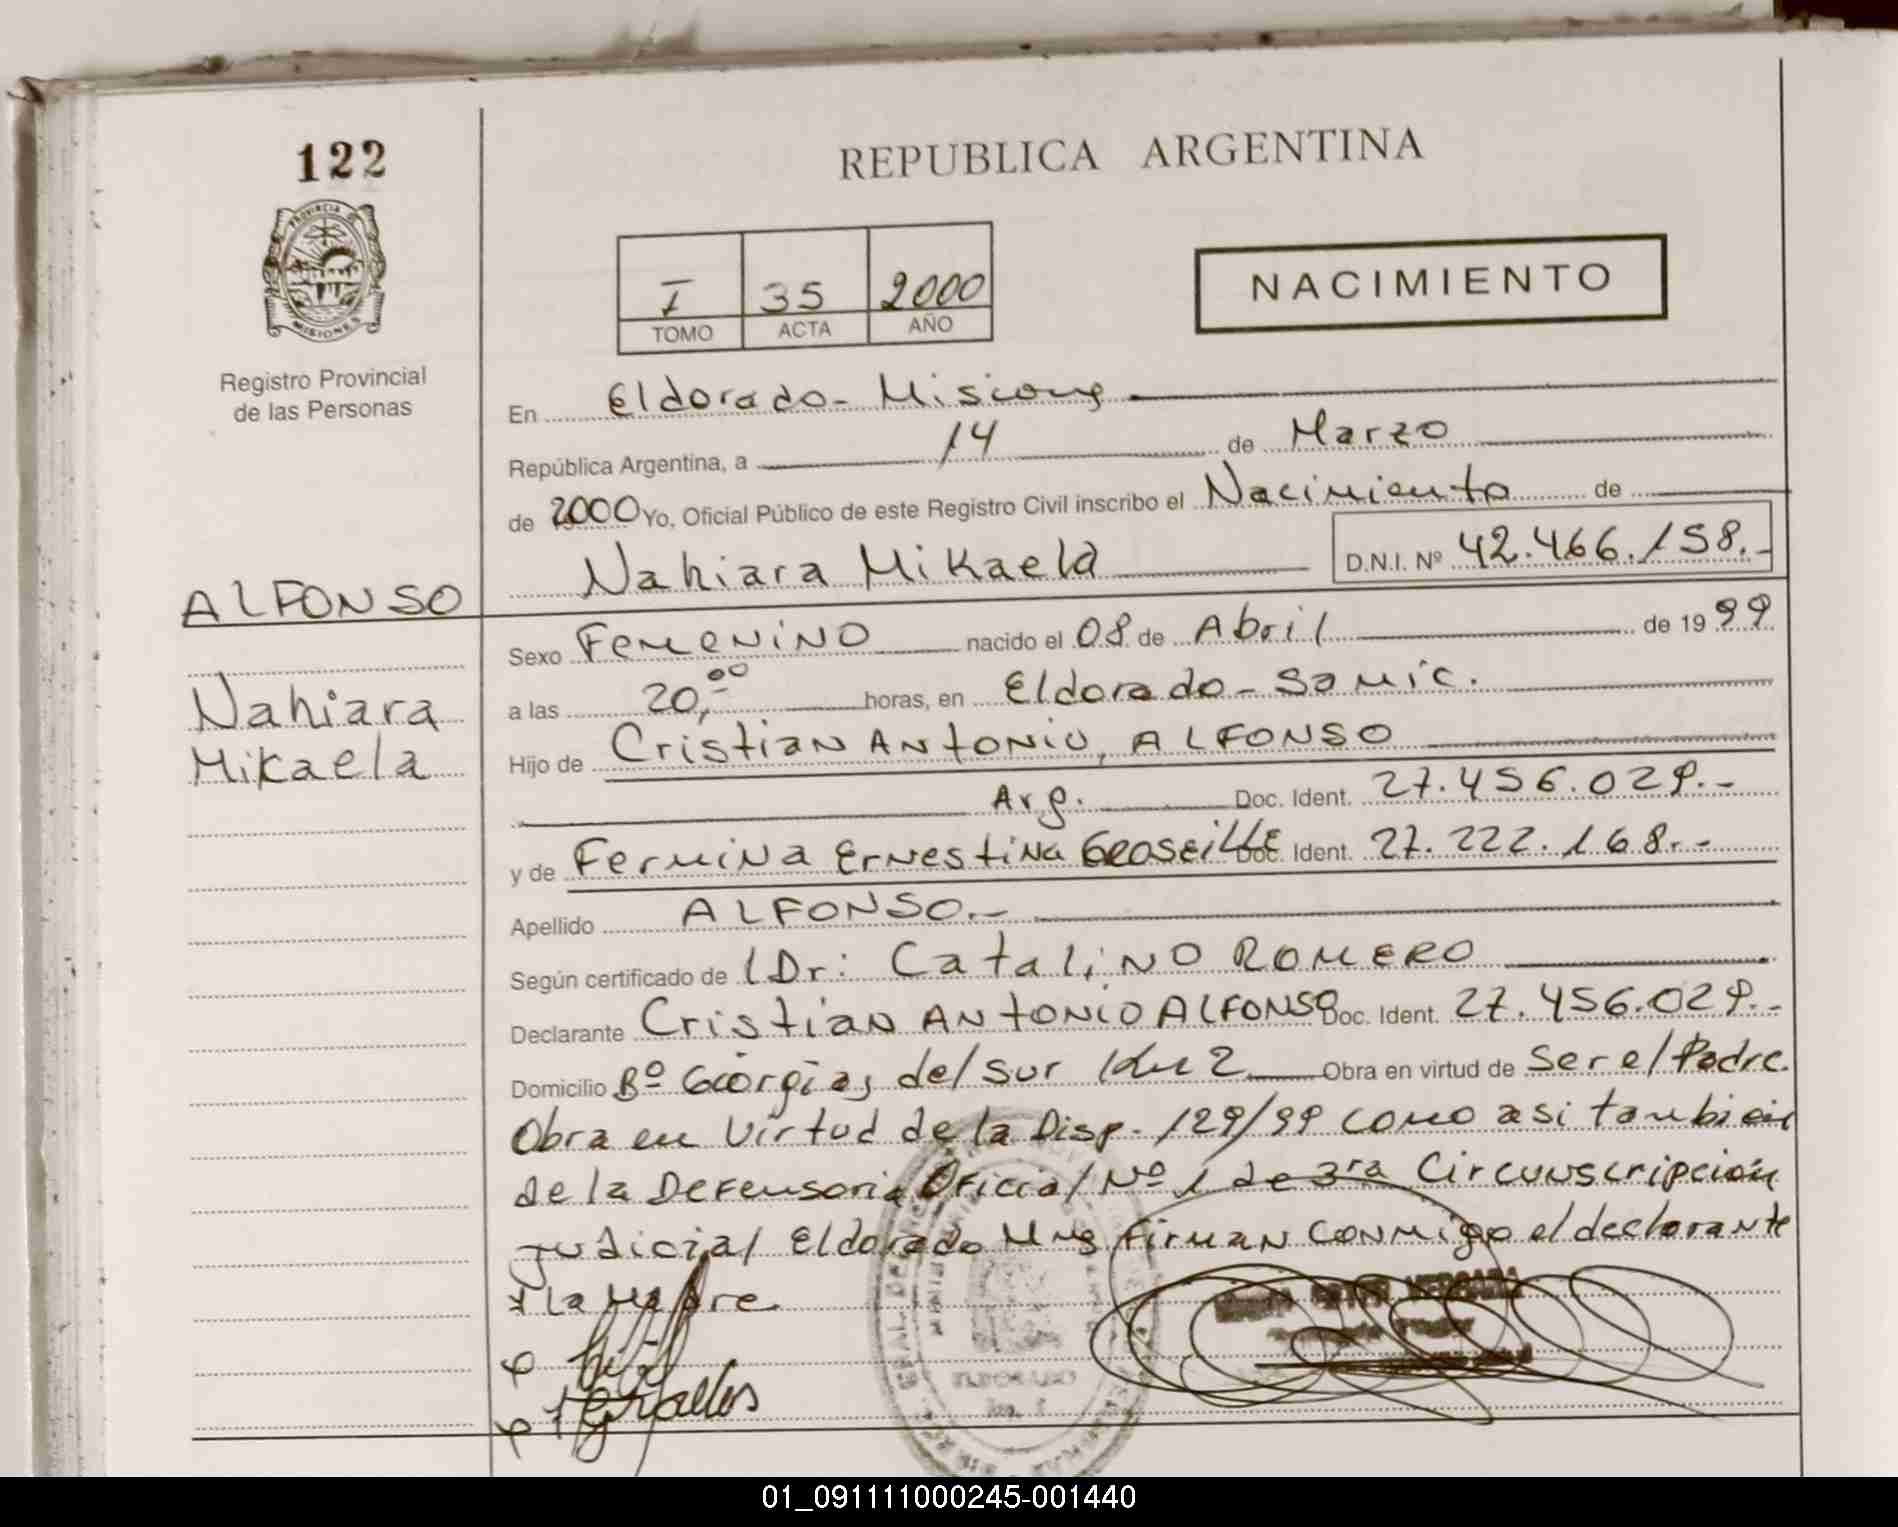 122
PROVINCIA DE
MISIONES
Registro Provincial
de las Personas
REPUBLICA ARGENTINA
I 35 2000
TOMO ACTA AÑO
NACIMIENTO
En Eldorado - Misiones
República Argentina, a 14 de Marzo
de 2000 Yo, Oficial Público de este Registro Civil inscribo el Nacimiento de
Nahiara Mikaela D.N.I. Nº 42.466.158.-
ALFONSO
Nahiara
Mikaela
Sexo Femenino nacido el 08 de Abril de 1999
a las 20,00 horas, en Eldorado - Samic.
Hijo de Cristian Antonio, ALFONSO
Arg. Doc. Ident. 27.456.029.-
y de Fermina Ernestina GROSEILLE Doc. Ident. 27.222.168.-
Apellido ALFONSO.-
Según certificado de Dr: Catalino ROMERO
Declarante Cristian Antonio ALFONSO Doc. Ident. 27.456.029.-
Domicilio Bº Giorgias del Sur Km 2 Obra en virtud de Ser el Padre.
Obra en Virtud de la Disp. 129/99 como asi tambien
de la Defensoria Oficial Nº 1 de 3ra Circunscripcion
Judicial Eldorado Mns Firman conmigo el declarante
y la Madre
ELDORADO
01_091111000245-001440